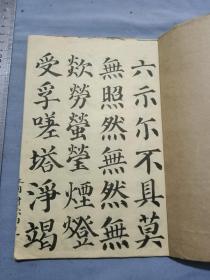 六示尓不具莫
無照然無然無
欻勞螢瑩煙燈
受孚嗟塔淨竭